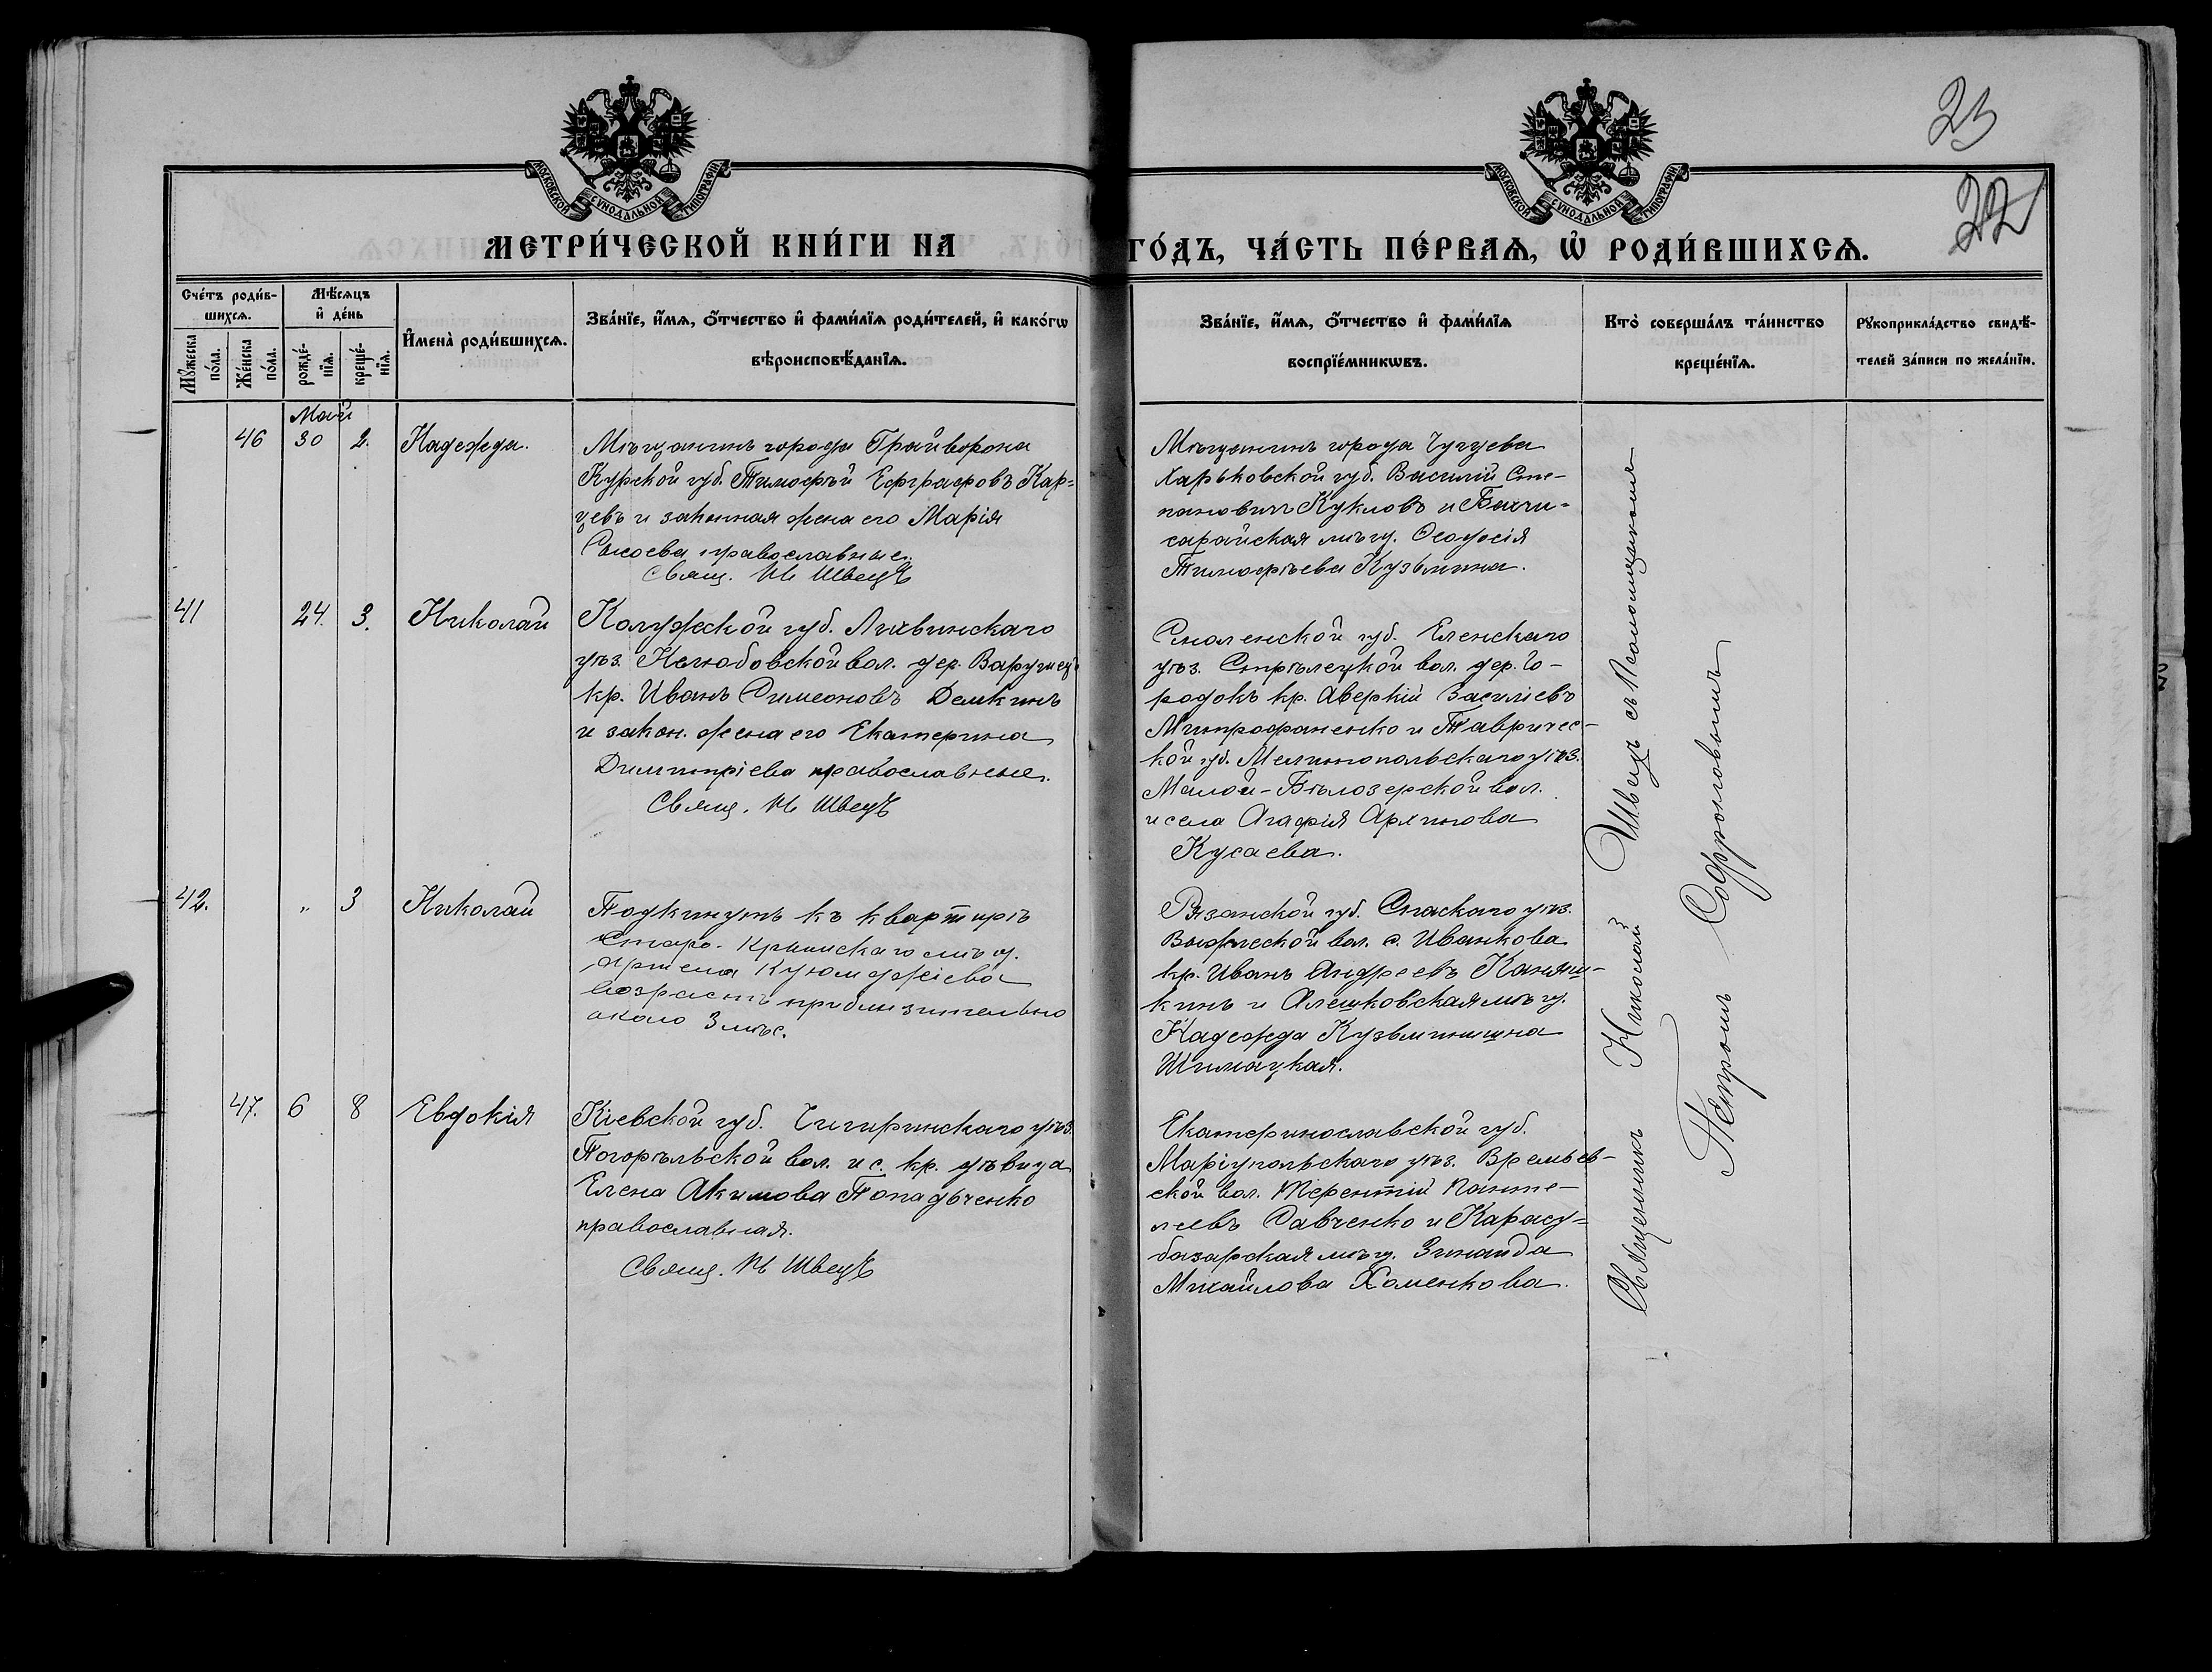 23
22
МОСКОВСКОЙ СУНОДАЛЬНОЙ ТИПОГРАФІИ
МОСКОВСКОЙ СУНОДАЛЬНОЙ ТИПОГРАФІИ
МЕТРИ́ЧЕСКОЙ КНИ́ГИ НА ГО́ДЪ, ЧА́СТЬ ПЕ́РВАѦ, Ѡ РОДИ́ВШИХСѦ.
Сче́тъ роди́в-
шихсѧ.
Мꙋ́жеска по́ла.
Же́нска по́ла.
Мѣ́сѧцъ
и де́нь
рожде́-
нїѧ.
креще́-
нїѧ.
И҆мена̀ роди́вшихсѧ.
Зва́нїе, и҆́мѧ, ѻ҆́тчество и҆ фами́лїѧ роди́телей, и҆ како́гѡ
вѣроисповѣ́данїѧ.
Зва́нїе, и҆́мѧ, ѻ҆́тчество и҆ фами́лїѧ
воспрїе́мникѡвъ.
Кто̀ соверша́лъ та́инство
креще́нїѧ.
Рꙋкоприкла́дство свидѣ́-
телей за́писи по жела́нїю.
Май
46 30 2. Надежда.
Мѣщанинъ города Грайворона
Курской губ. Тимофѣй Евграфовъ Кар=
цевъ и законная жена его Марія
Сысоева православные.
Свящ. Н. Швецъ
Мѣщанинъ города Чугуева
Харьковской губ. Василій Сте-
пановичъ Кукловъ и Бахчи-
сарайская мѣщ. Ѳеодосія
Тимофѣева Кузьмина.
41 24. 3. Николай
Калужской губ. Лихвинскаго
уѣз. вол. дер.
кр. Иванъ Симеоновъ Демкинъ
и закон. жена его Екатерина
Димитріева православные.
Свящ. Н. Швецъ
Смоленской губ. Еленскаго
уѣз. Стрѣлецкой вол. дер. Го-
родокъ кр. Аверкій Василіевъ
Митрофаненко и Тавричес-
кой губ. Мелитопольскаго уѣз.
Малой-Бѣлозерской вол.
и села Агафія Архипова
Кусаева.
42. " 3 Николай
Подкинутъ къ квартирѣ
Старо-Крымскаго мѣщ.
возрастъ приблизительно
около 3 мѣс.
Рязанской губ. Спаскаго уѣз.
вол. с. Иванкова
кр. Иванъ Андреевъ Каняш-
кинъ и Алешковская мѣщ.
Надежда Кузьминишна
Шимацкая.
47. 6 8 Евдокія
Кіевской губ. Чигиринскаго уѣз.
Погорѣльской вол. и с. кр. дѣвица
Елена Акимова Попадьченко
православная.
Свящ. Н. Швецъ
Екатеринославской губ.
Маріупольскаго уѣз. Времьев-
ской вол. Терентій Панте-
леевъ Савченко и Карасу=
базарская мѣщ. Зинаида
Михайлова Хоменкова.
Священникъ Николай Швецъ съ Псаломщикомъ
Петромъ Софроновымъ